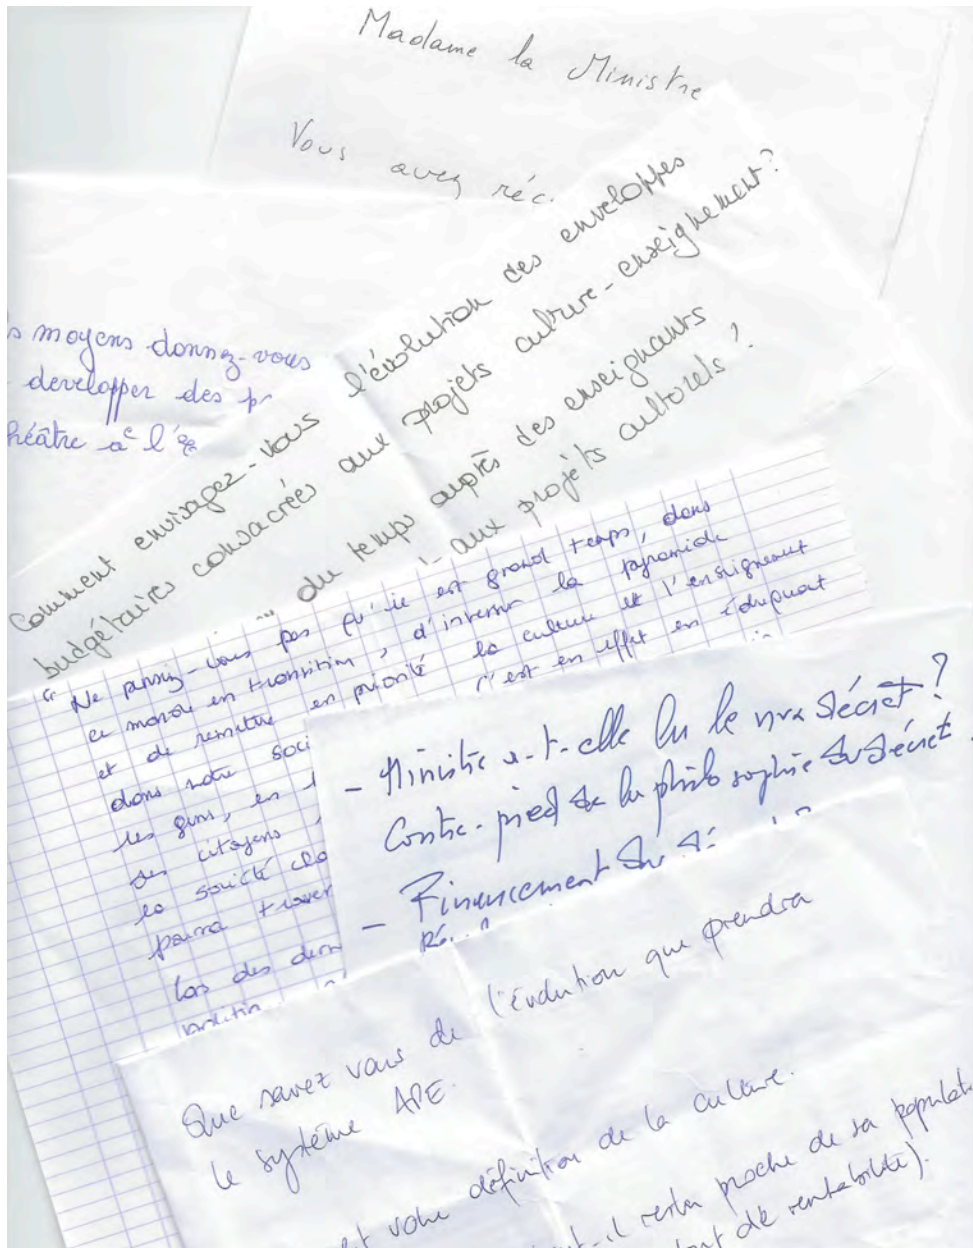 Madame la Ministre
Vous avez réc.
s moyens donnez-vous
developper des pr
héâtre à l'
Comment envisagez-vous l'évolution des enveloppes
budgétaires consacrées aux projets culture-enseignement?
du temps auprès des enseignants
aux projets culturels?
"Ne pensez-vous pas qu'il est grand temps, dans
ce monde en transition, d'inverser la pyramide
et de remettre en priorité la culture et l'enseignement
dans notre soci c'est en effet en éduquant
les gens, en
des citoyens
la société
pourra trouver
Lors des dern
- Ministre a-t-elle lu le vrai Décret?
Contre-pied de la philosophie du Décret.
- Financement du
Que savez vous de l'évolution que prendra
le système APE.
votre définition de la culture.
-il rester proche de sa populat
de rentabilité).